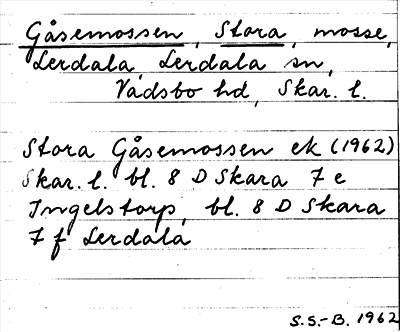 Gåsemossen, Stora, mosse,
Lerdala, Lerdala sn,
Vadsbo hd, Skar. l.
Stora Gåsemossen ek (1962)
Skar. l. bl. 8 D Skara 7 e
Ingelstorp, bl. 8 D Skara
7 f Lerdala
S.S.-B. 1962